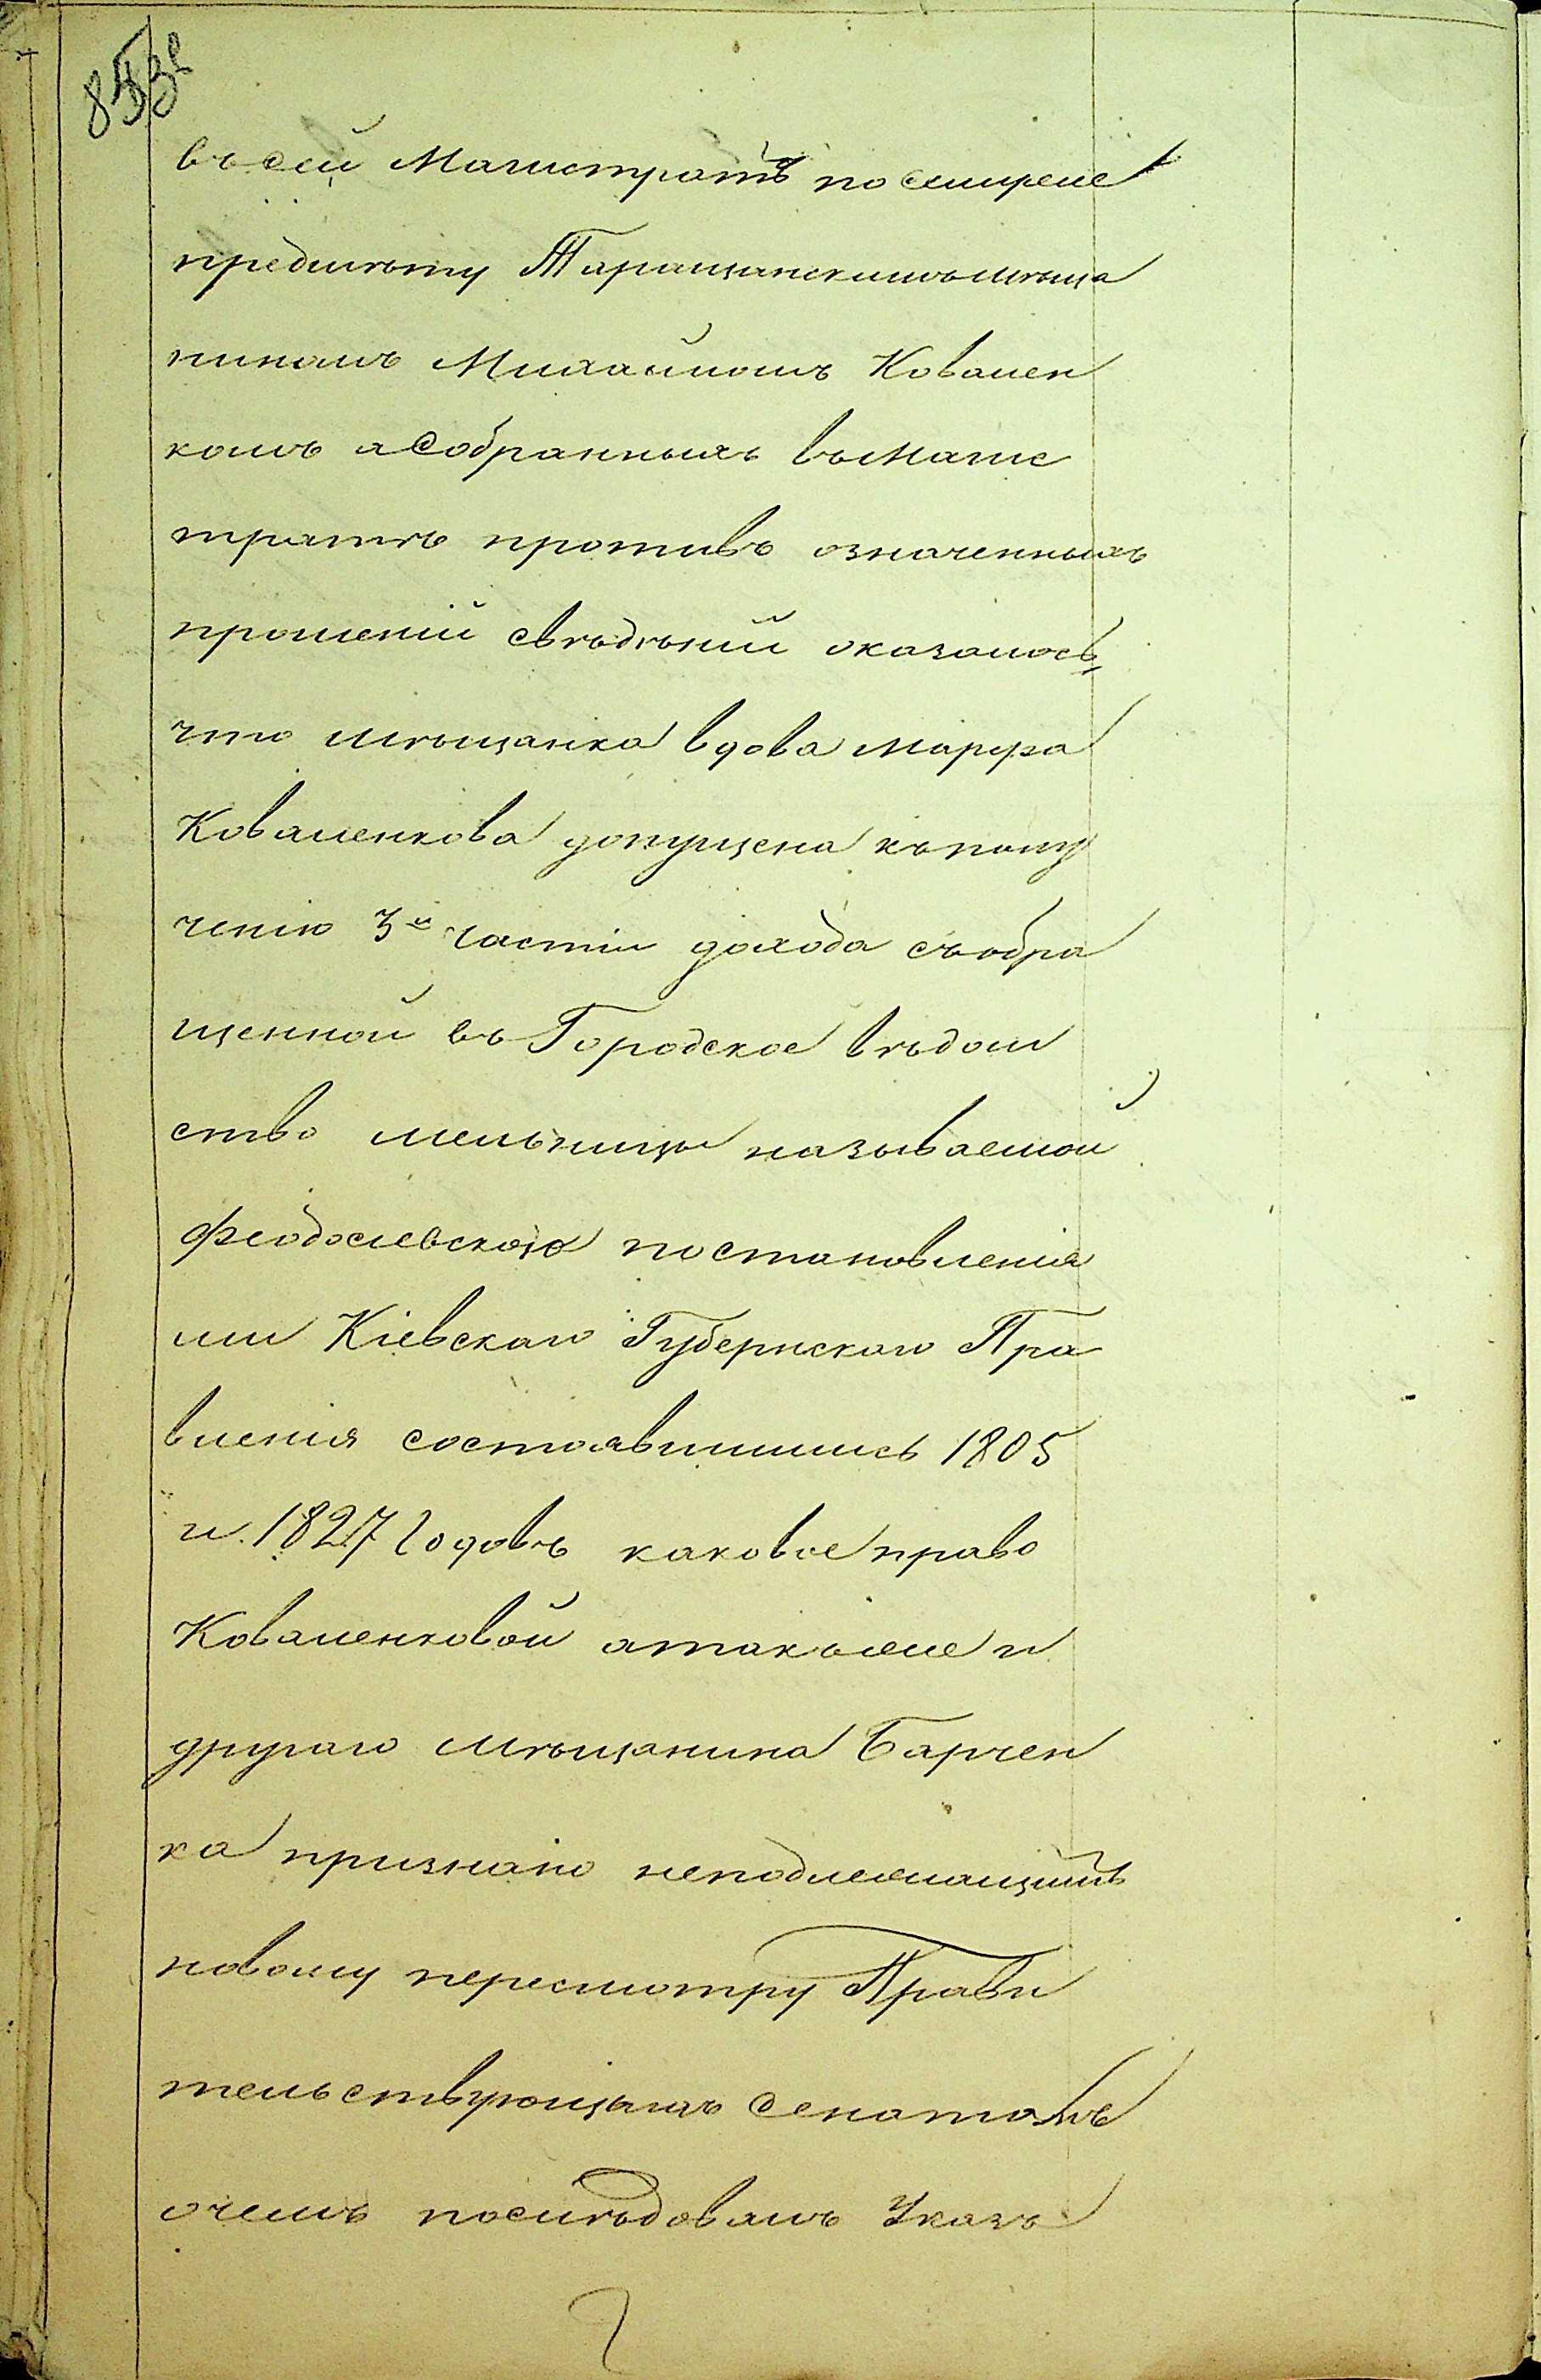 въ сей Магистратъ по сему же
предмѣту Таращанскимъ мѣща
ниномъ Михайломъ Ковален
комъ а Собранныхъ въ Магис
тратѣ противъ означенныхъ
прошеній свѣдѣній оказалось,
что мѣщанка вдова Марфа
Коваленкова допущена къ полу
ченію 3й части дохода съ обра
щенной въ Городское вѣдом
ство мельницы называемой
Феодосіевскою постановлені
ми Кіевскаго Губернскаго Пра
вленія состоявшимись 1805
и 1827 годовъ каковое право
Коваленковой а такъ же и
другаго мѣщанина Барчен
ка признано неподлежащимъ
новому пересмотру Прави
тельствующимъ Сенатомъ
о чемъ послѣдовалъ Указъ